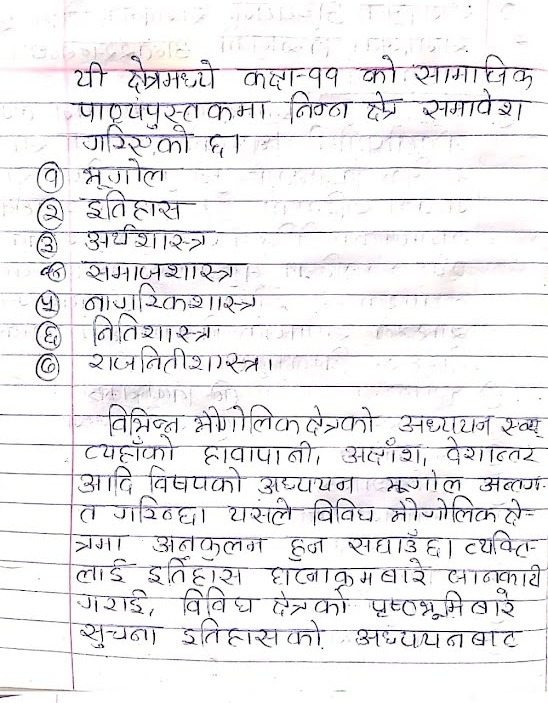 यी क्षेत्रमध्ये कक्षा-११ को सामाजिक
पाठ्यपुस्तकमा निम्न क्षेत्र समावेश
गरिएको छ।
१ भूगोल
२ इतिहास
३ अर्थशास्त्र
४ समाजशास्त्र
५ नागरिकशास्त्र
६ नितिशास्त्र
७ राजनितीशास्त्र।
विभिन्न भौगोलिक क्षेत्रको अध्ययन
त्यहाँको हावापानी, अक्षाँश, देशान्तर
आदि विषयको अध्ययन भूगोल अन्तर्ग-
त गरिन्छ। यसले विविध भौगोलिक क्षे-
त्रमा अनुकुलन हुन सघाउँछ। व्यक्ति-
लाई इतिहास घटनाक्रमबारे जानकारी
गराई, विविध क्षेत्रको पृष्ठभूमिबारे
सुचना इतिहासको अध्ययनबाट